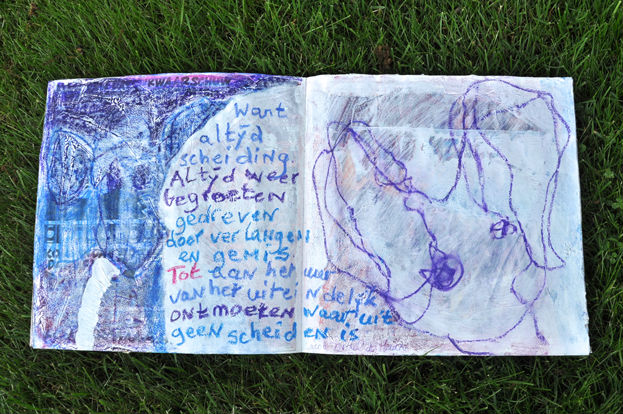 Want
altijd
scheiding.
Altijd weer
begroeten
gedreven
door verlangen
en gemis.
Tot aan het uur
van het uiteindelijk
ontmoeten waaruit
geen scheiden is